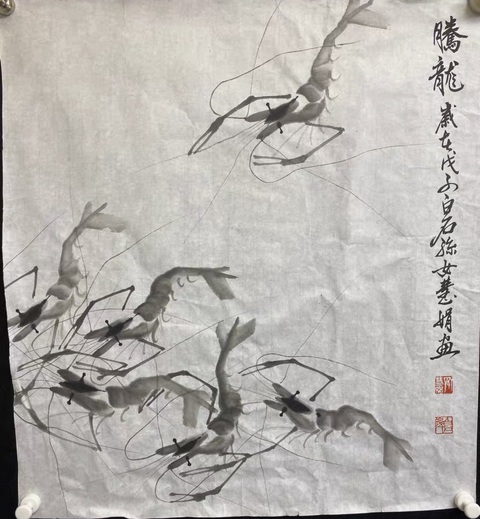 騰龍 歲在戊子白石孫女慧娟画